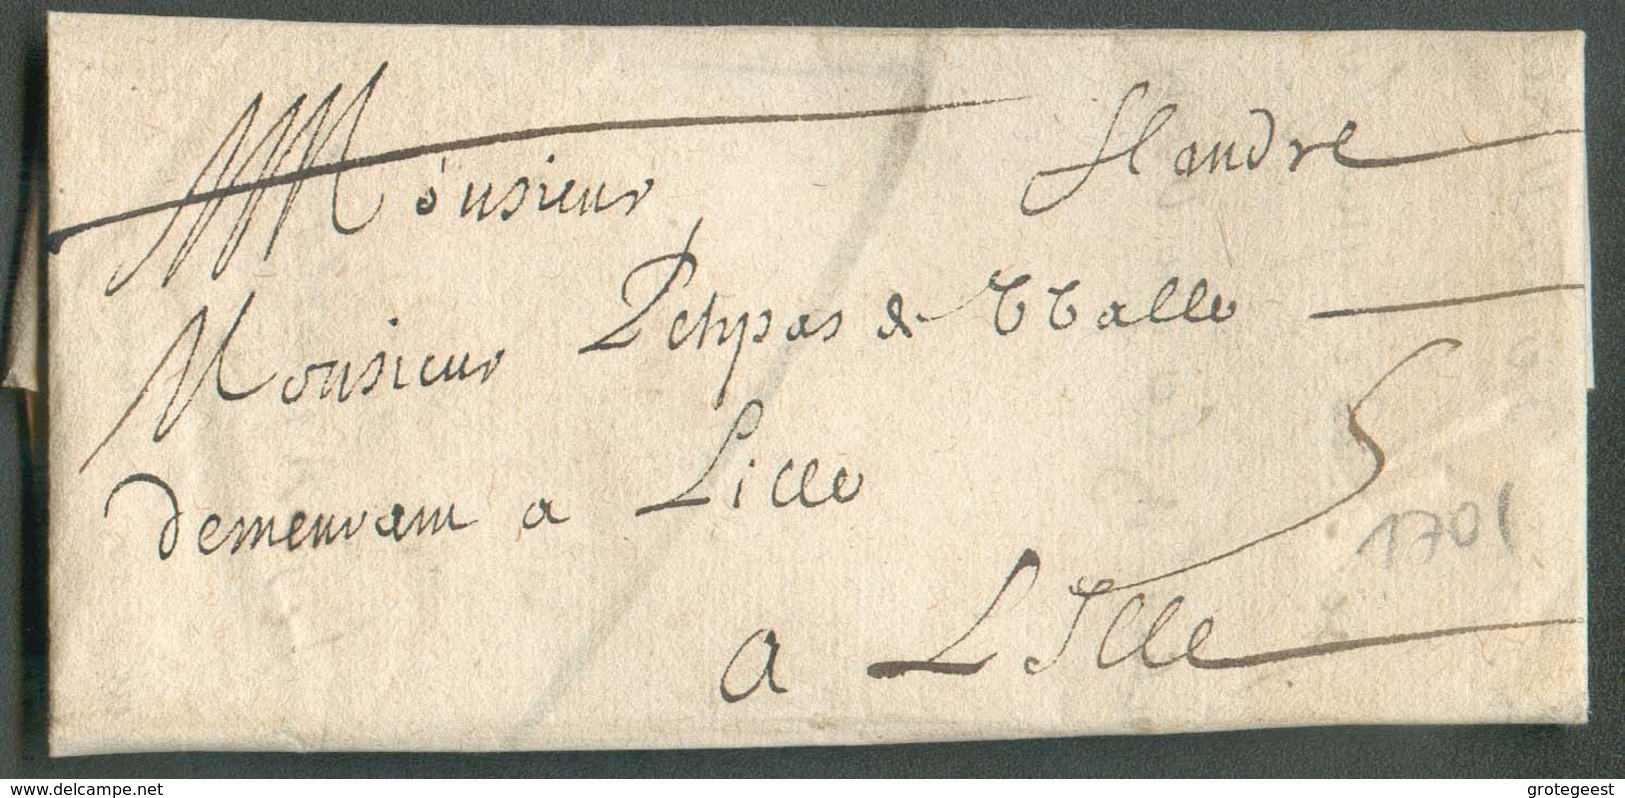 Monsieur Flandre
Monsieur Petypas de Walle
demeurant a Lille
5
1701
a Lille
www.delcampe.net
grotegeest